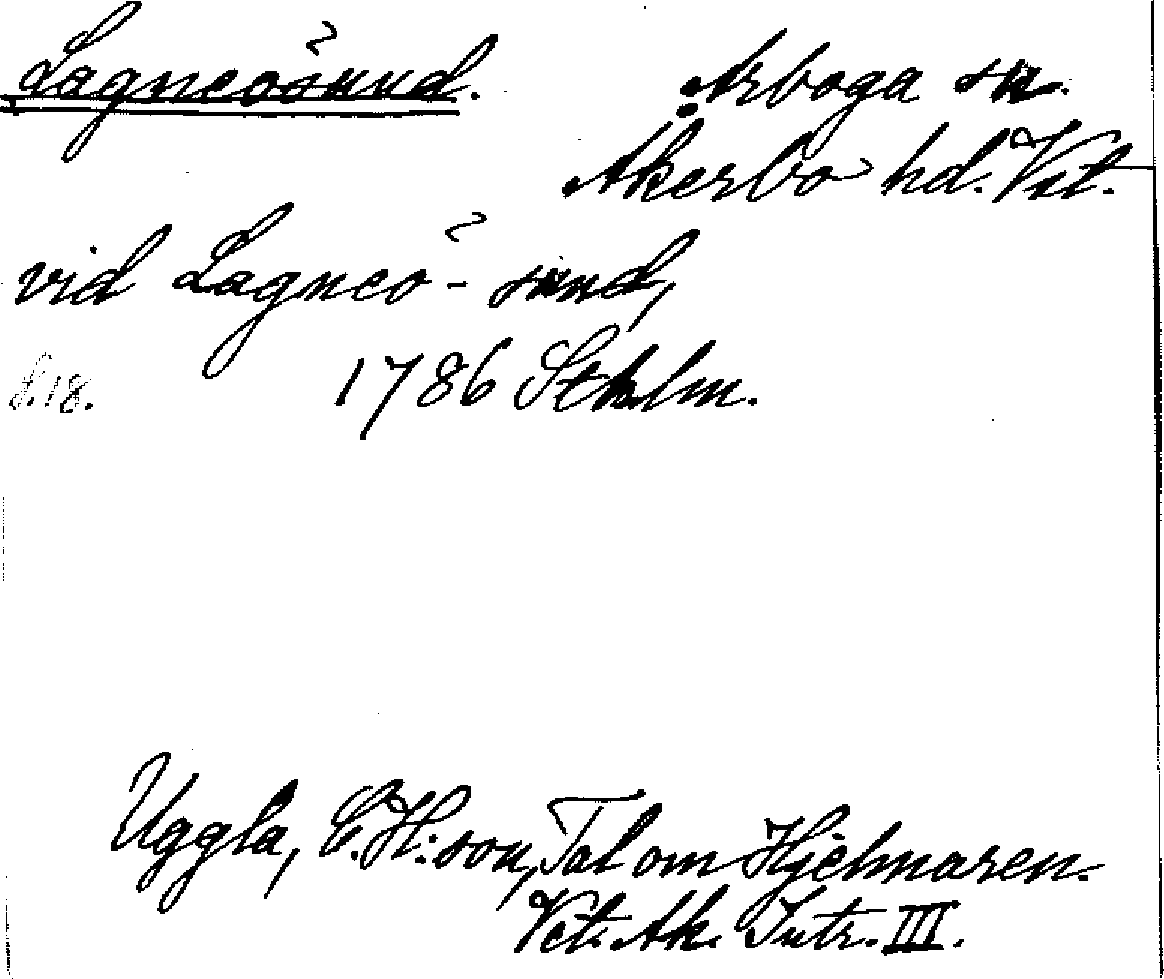 Lagneösund.
Arboga sn.
Åkerbo hd. Vstl.
vid Lagneö-sund,
s. 18. 1786 Sthlm.
Uggla, C. H:son, Tal om Hjelmaren.
Vet. Ak. Intr. III.